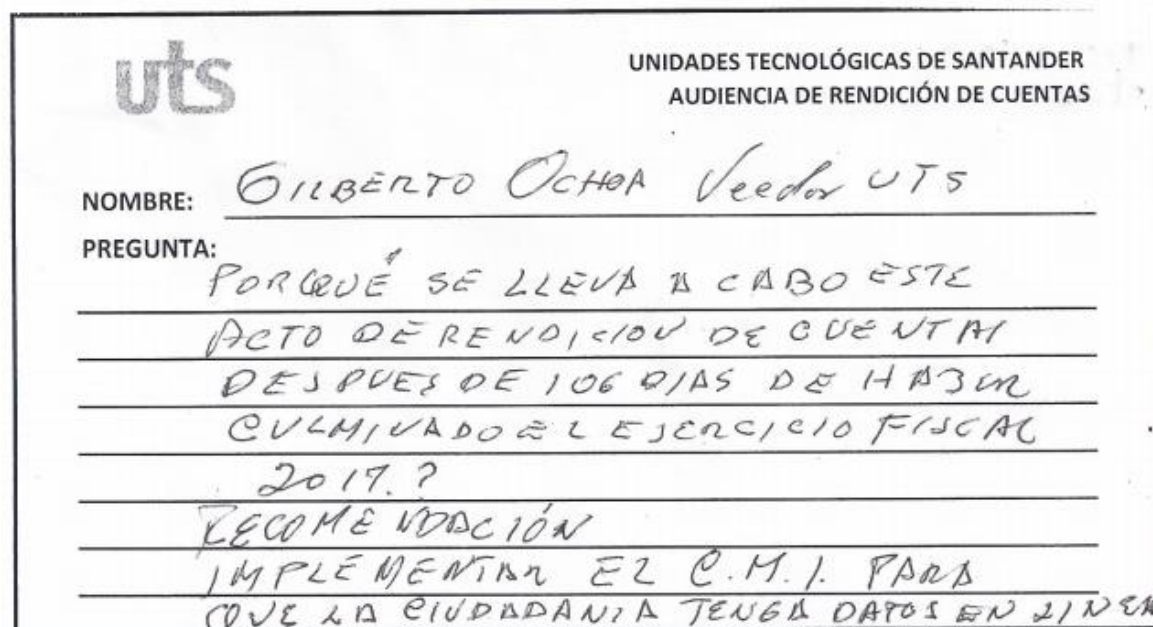 uts
UNIDADES TECNOLÓGICAS DE SANTANDER
AUDIENCIA DE RENDICIÓN DE CUENTAS
NOMBRE: GILBERTO OCHOA Veedor UTS
PREGUNTA:
PORQUÉ SE LLEVA A CABO ESTE
ACTO DE RENDICION DE CUENTAS
DESPUES DE 106 DIAS DE HABER
CULMINADO EL EJERCICIO FISCAL
2017.?
RECOMENDACIÓN
IMPLEMENTAR EL C.M.I. PARA
QUE LA CIUDADANIA TENGA DATOS EN LINEA